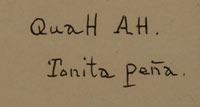 Quah AH.
Tonita peña.